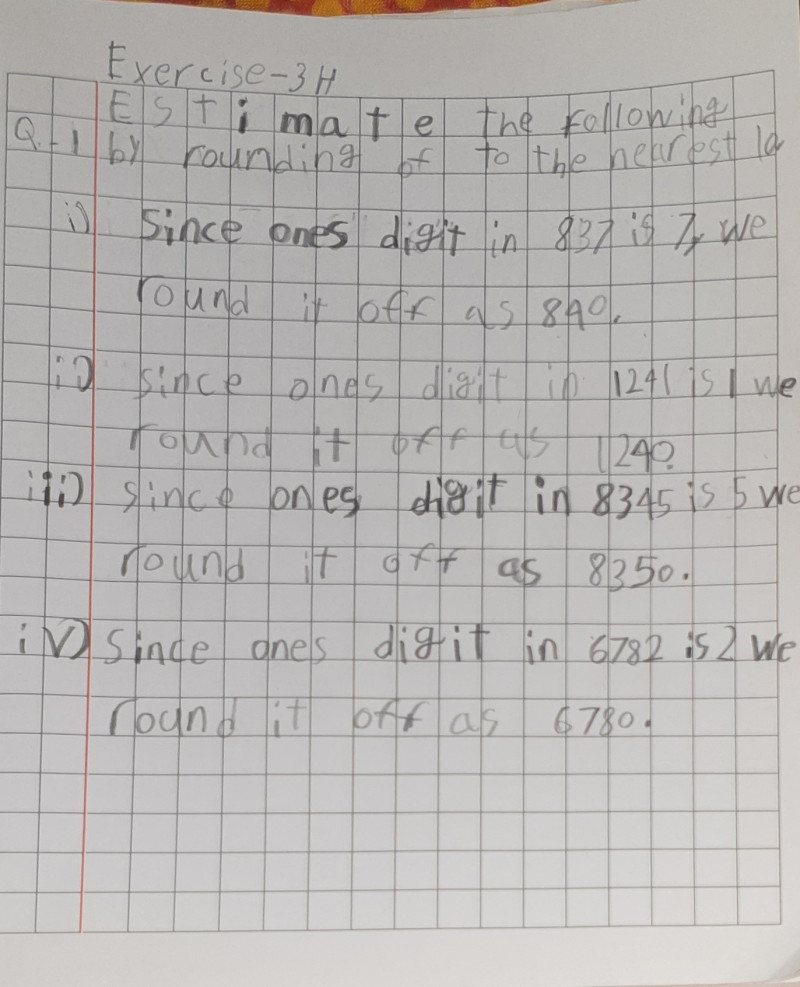 Exercise-3H
Estimate the following
Q-1 by rounding of to the nearest 10
i) Since ones digit in 837 is 7, we
round it off as 840.
ii) since ones digit in 1241 is 1 we
round it off as 1240.
iii) since ones digit in 8345 is 5 we
round it off as 8350.
iv) Since ones digit in 6782 is 2 we
round it off as 6780.